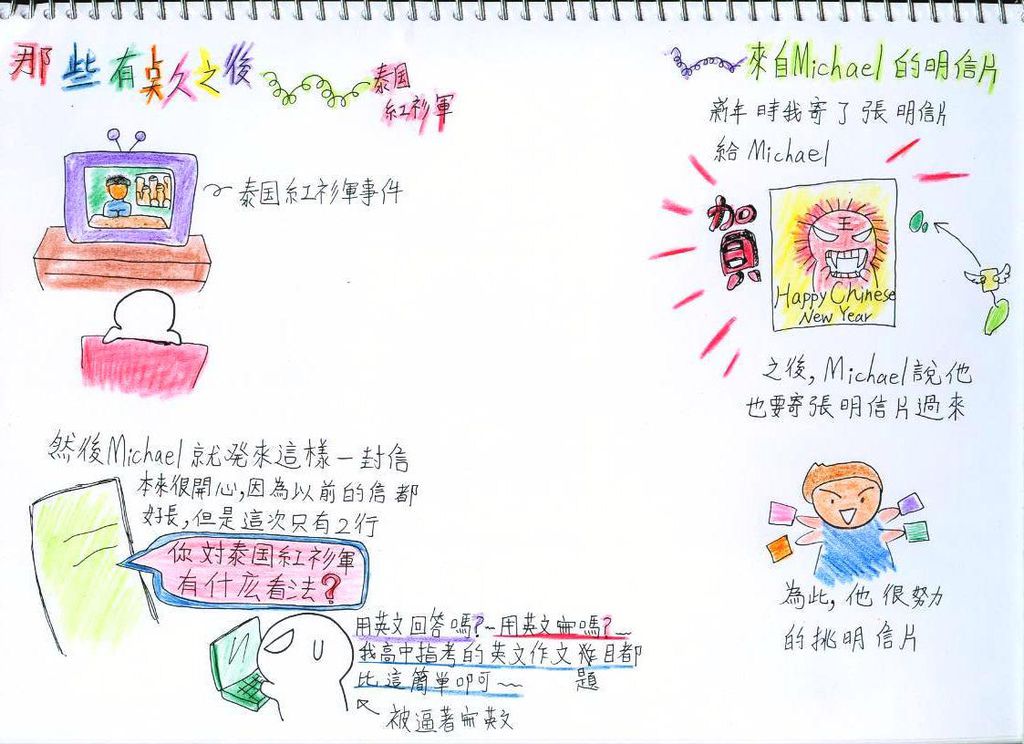 那些有点久之後
泰国
紅衫軍
泰国紅衫軍事件
然後Michael就発來這樣一封信
本來很開心,因為以前的信都
好長,但是這次只有2行
你对泰国紅衫軍
有什麼看法?
用英文回答嗎?~用英文
嗎?~
我高中指考的英文作文題目都
比這簡單叩可~~
被逼著
英文
來自Michael的明信片
新年時我寄了張明信片
給Michael
賀
王
Happy Chinese
New Year
之後,Michael說他
也要寄張明信片過來
為此,他很努力
的挑明信片